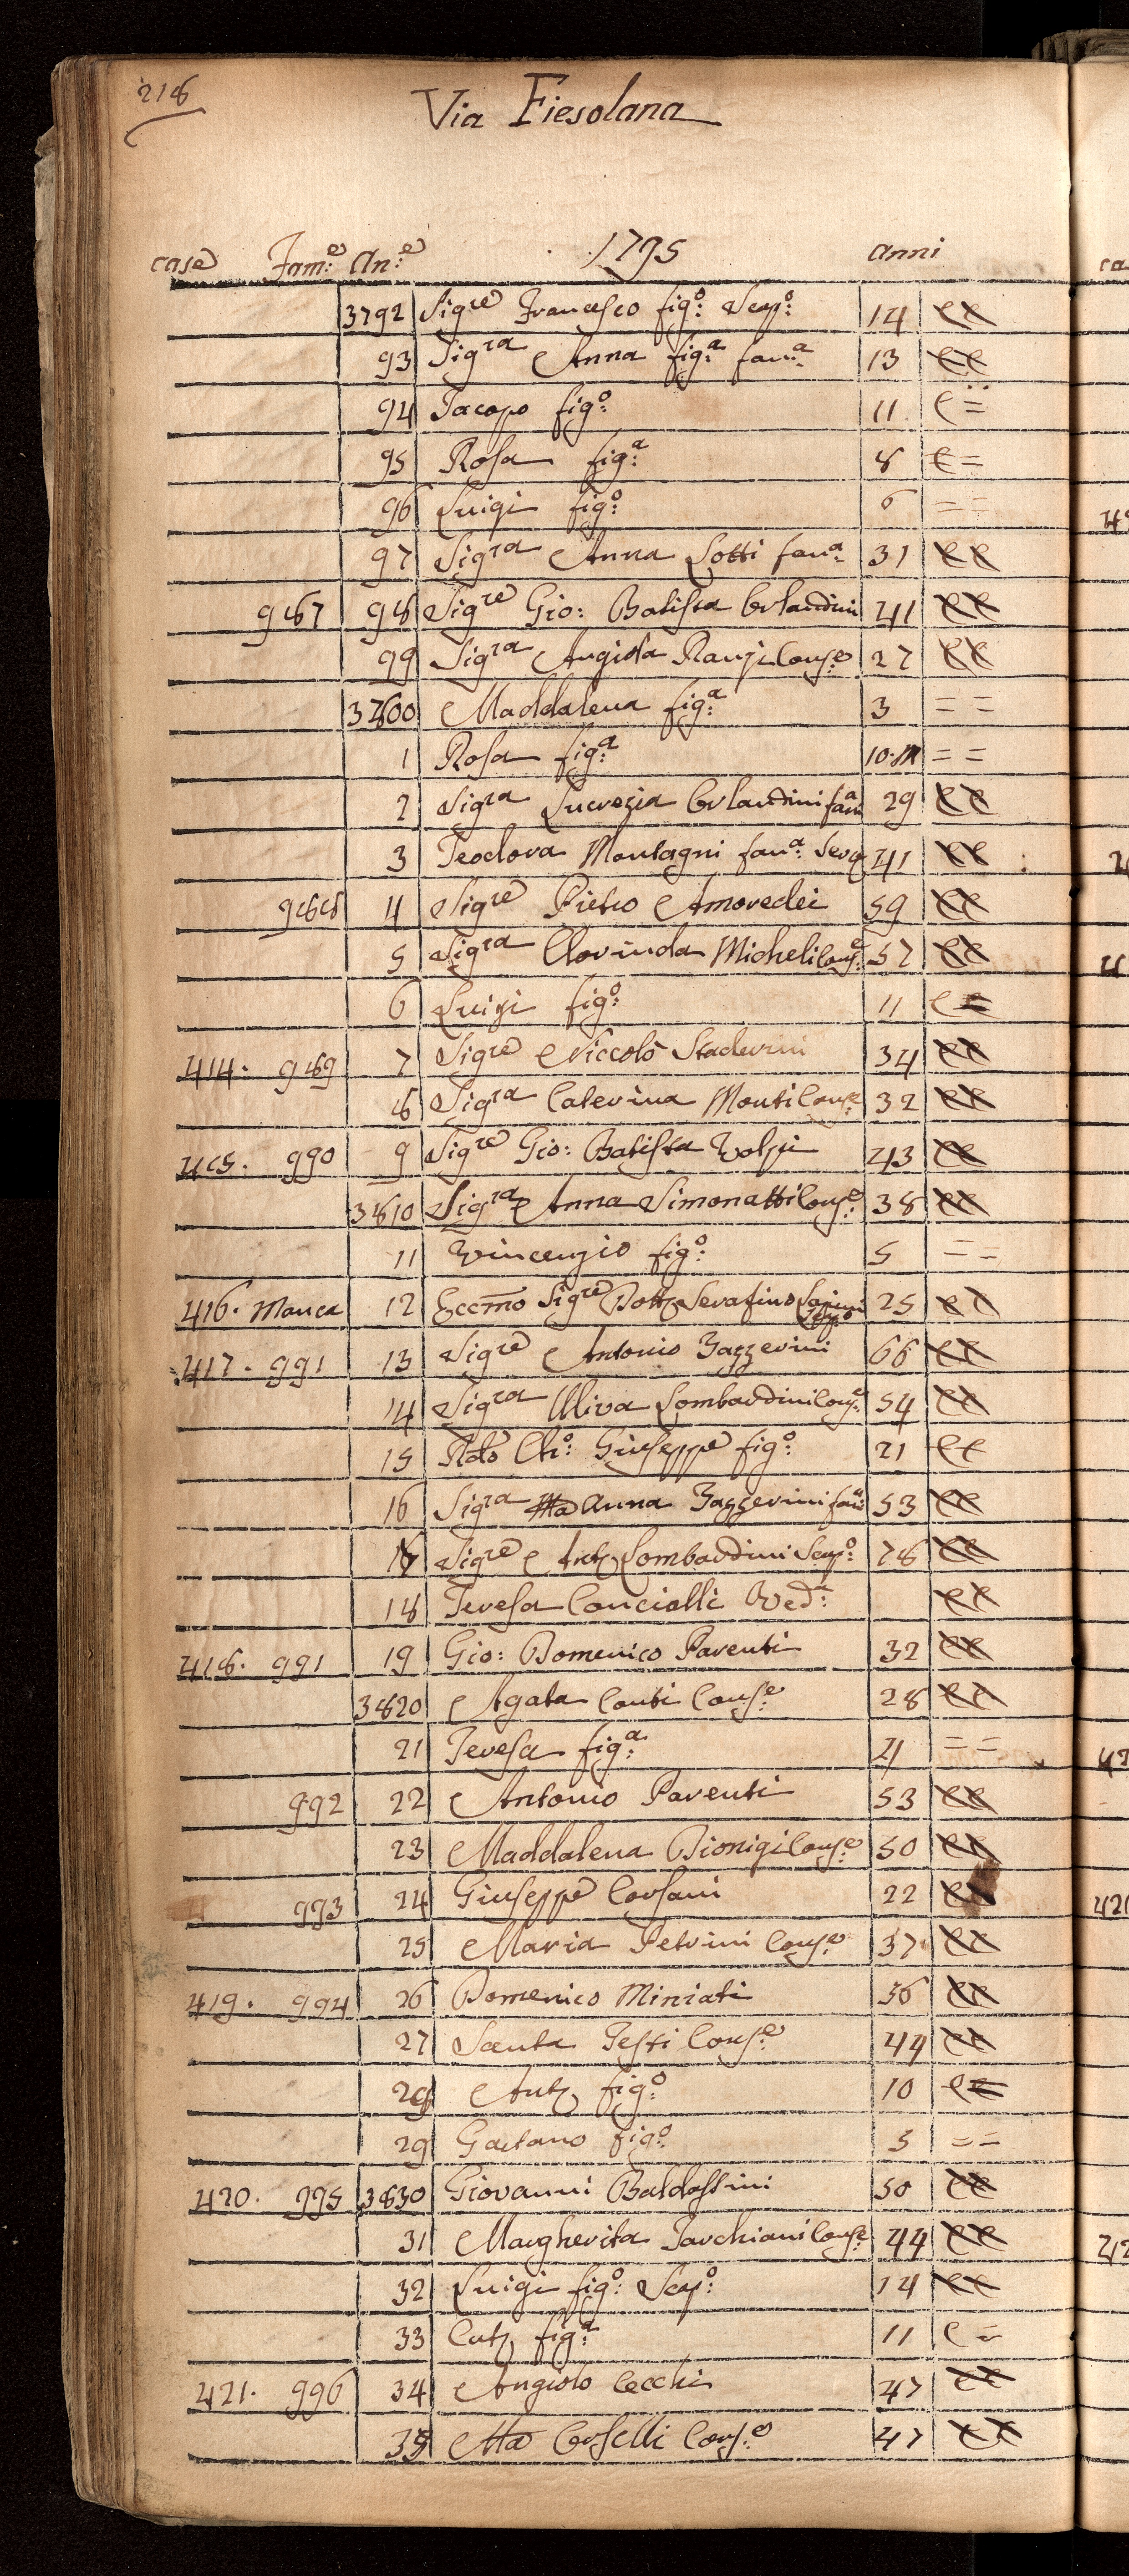 218
Via Fiesolana
case Fam:e An:e 1795 anni
3792 Sigre Francesco fig:o Scap:o 14
93 Sigra Anna fig:a fan:a 13
94 Jacopo fig:o 11
95 Rosa fig:a 8
96 Luigi fig:o 6 = =
97 Sigra Anna Lotti fan:a 31
987 98 Sigre Gio: Batista Orlandini 41
99 Sigra Angiola Ranzi Cons:e 27
3800 Maddalena fig:a 3 = =
1 Rosa fig:a 10.M = =
2 Sigra Lucrezia Orlandini fan:a 29
3 Teodora Montagni fan:a Serva 41
988 4 Sigre Pietro Amoredei 59
5 Sigra Clorinda Micheli Cons:e 57
6 Luigi fig:o 11
414. 989 7 Sigre Niccolò Staderini 34
8 Sigra Caterina Monti Cons:e 32
415. 990 9 Sigre Gio: Batista Volpi 43
3810 Sigra Anna Simonatti Cons:e 38
11 Vincenzio fig:o 5 = =
416. Manca 12 Eccmo Sigre Dott. Serafino 25
417. 991 13 Sigre Antonio Zazzerini 66
14 Sigra Uliva Lombardini Cons:e 54
15 Rdo Ch:o Giuseppe fig:o 21
16 Sigra Ma Anna Zazzerini fan:a 53
17 Sigre Ant. Lombardini Scap:o 78
18 Teresa Concialli Ved:a
418. 991 19 Gio: Domenico Parenti 32
3820 Agata Conti Cons:e 28
21 Teresa fig:a 4 = =
992 22 Antonio Parenti 53
23 Maddalena Dionigi Cons:e 50
993 24 Giuseppe Corsani 22
25 Maria Petrini Cons:e 37
419. 994 26 Domenico Miniati 56
27 Santa Testi Cons:e 44
28 Ant. fig:o 10
29 Gaetano fig:o 5 = =
420. 995 3830 Giovanni Baldassini 50
31 Margherita Tarchiani Cons:e 44
32 Luigi fig:o Scap:o 14
33 Cat. fig:a 11
421. 996 34 Angiolo Cecchi 47
35 Ma Orselli Cons:e 47